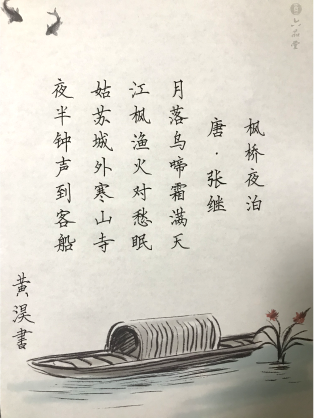 枫桥夜泊
唐·张继
月落乌啼霜满天
江枫渔火对愁眠
姑苏城外寒山寺
夜半钟声到客船
黄淏书
六品堂